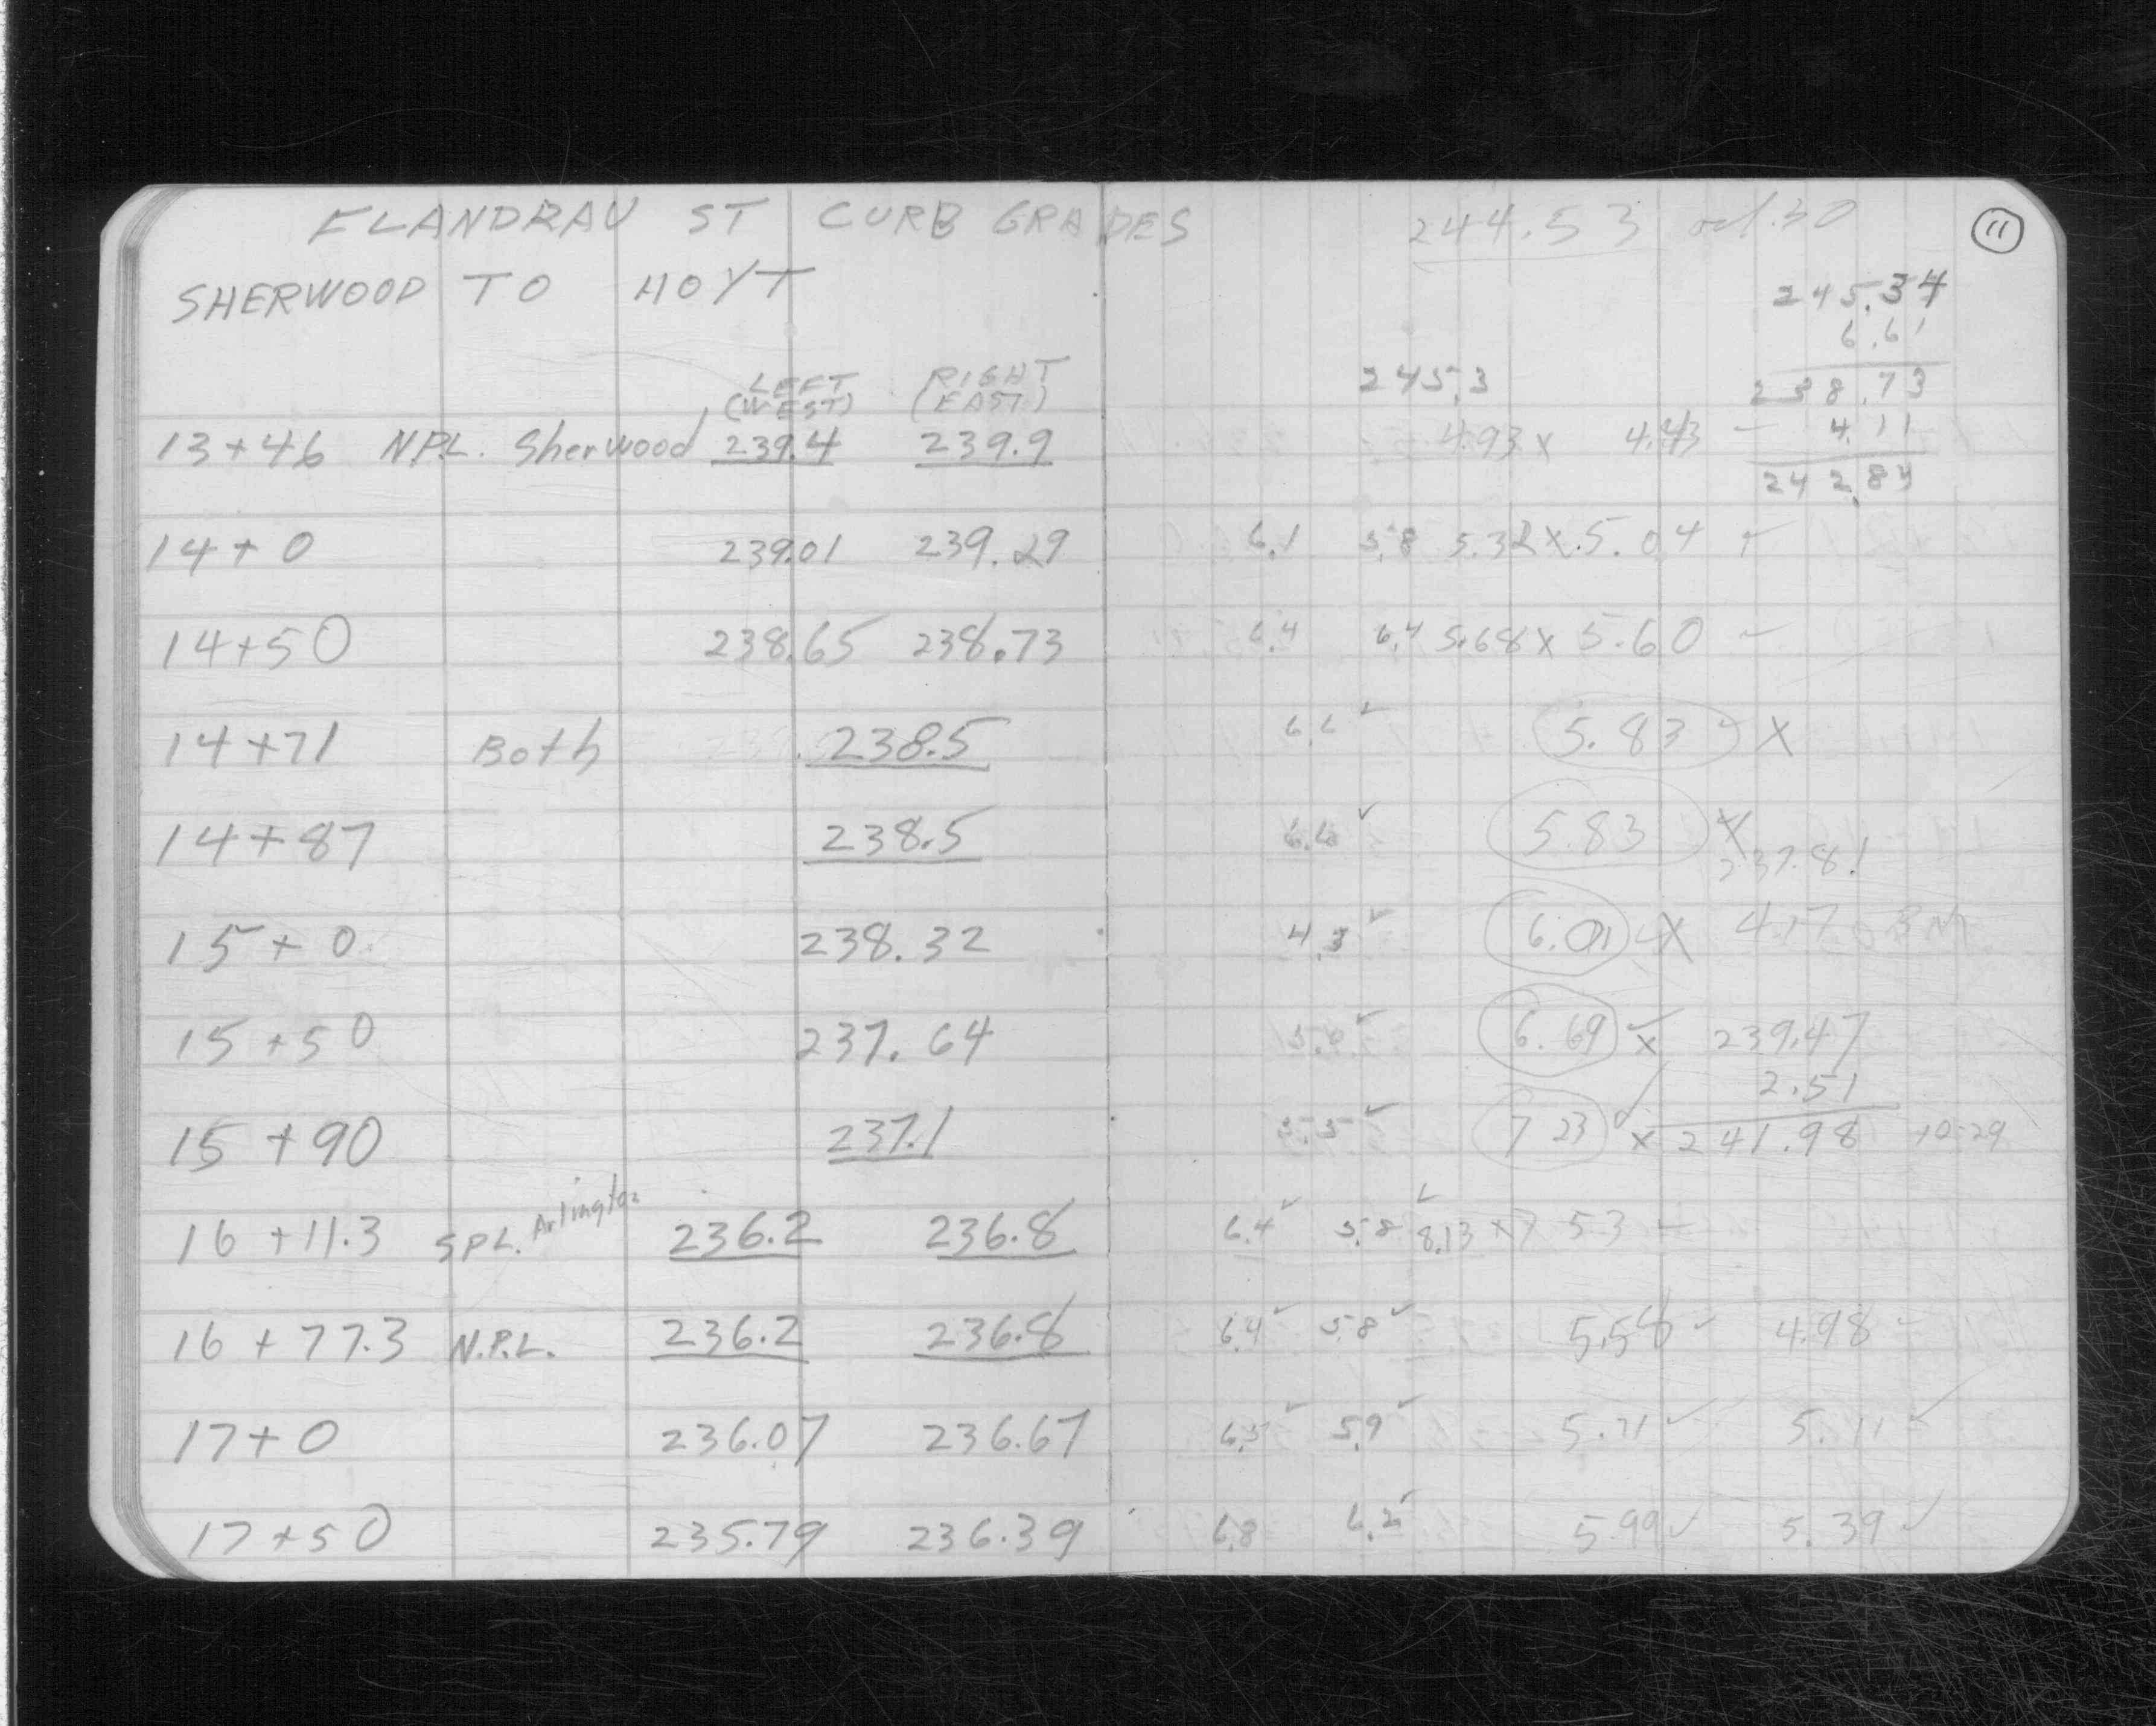 FLANDRAU ST CURB GRADES 244.53 11
SHERWOOD TO HOYT 245.34
6.61
LEFT RIGHT 245.3 238.73
(WEST) (EAST)
13+46 N.P.L. Sherwood 239.4 239.9 4.93 x 4.43 4.11
242.84
14+0 239.01 239.29 6.1 5.8 5.32 x 5.04 ✓
14+50 238.65 238.73 6.4 6.4 5.68 x 5.60 ✓
14+71 Both 238.5 6.6 ✓ 5.83 ✓ X
14+87 238.5 6.6 ✓ 5.83 X
237.81
15+0 238.32 4.3 ✓ 6.01 ✓ X 4.17 BM
15+50 237.64 5.0 ✓ 6.69 ✓ x 239.47
2.51
15+90 237.1 5.5 ✓ 7.23 ✓ x 241.98 10-29
16+11.3 S.P.L. Arlington 236.2 236.8 6.4 ✓ 5.8 ✓ 8.13 x 7.53 ✓
16+77.3 N.P.L. 236.2 236.8 6.4 ✓ 5.8 ✓ 5.58 ✓ 4.98 ✓
17+0 236.07 236.67 6.5 ✓ 5.9 ✓ 5.71 ✓ 5.11 ✓
17+50 235.79 236.39 6.8 6.2 ✓ 5.99 ✓ 5.39 ✓